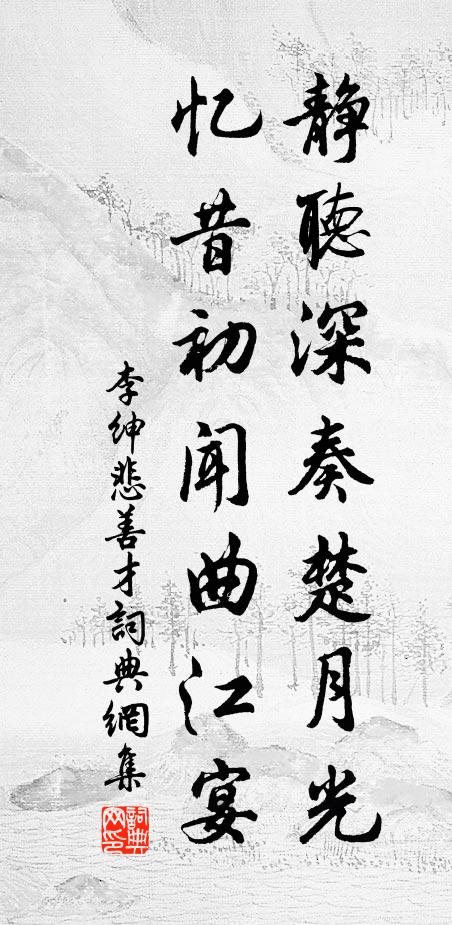 静聽深奏楚月光
忆昔初闻曲江宴
李紳悲善才詞典網集
詞典
网印